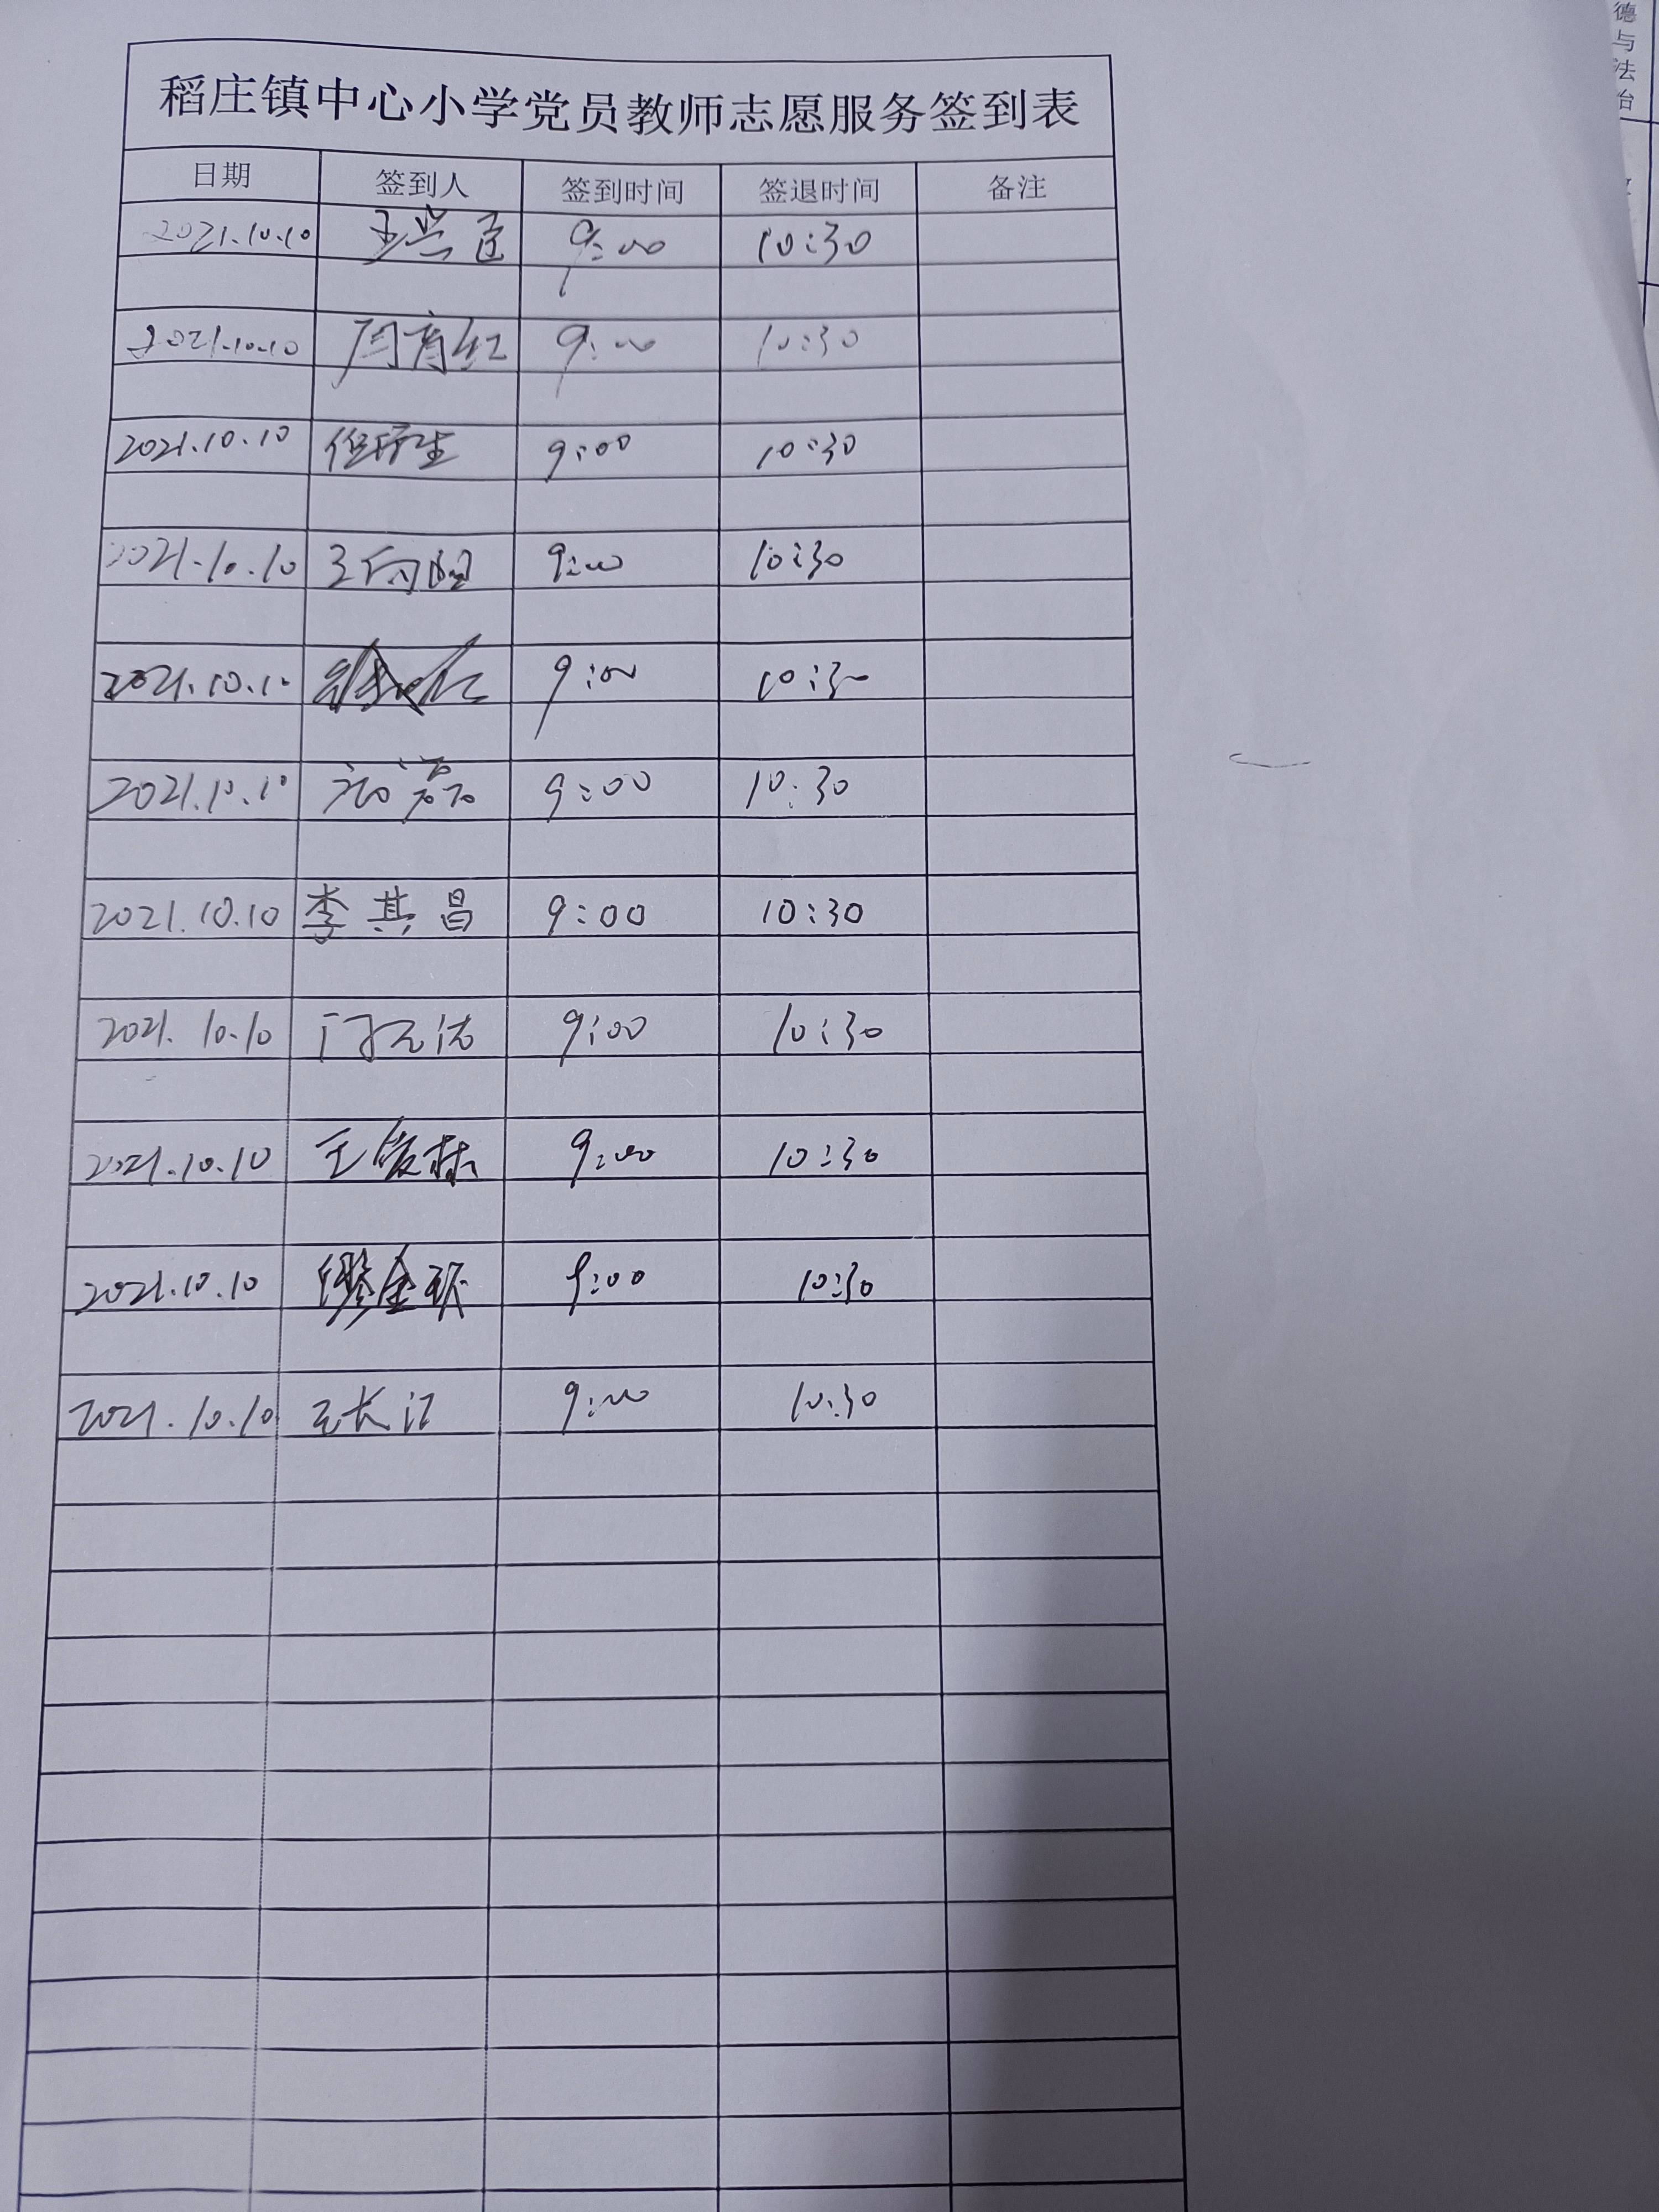 稻庄镇中心小学党员教师志愿服务签到表
日期 签到人 签到时间 签退时间 备注
2021.10.10 王兴臣 9:00 10:30
2021.10.10 周育红 9:00 10:30
2021.10.10 9:00 10:30
2021.10.10 9:00 10:30
2021.10.10 9:00 10:30
2021.10.10 9:00 10:30
2021.10.10 李其昌 9:00 10:30
2021.10.10 9:00 10:30
2021.10.10 王俊林 9:00 10:30
2021.10.10 9:00 10:30
2021.10.10 王长江 9:00 10:30
德
与
法
治